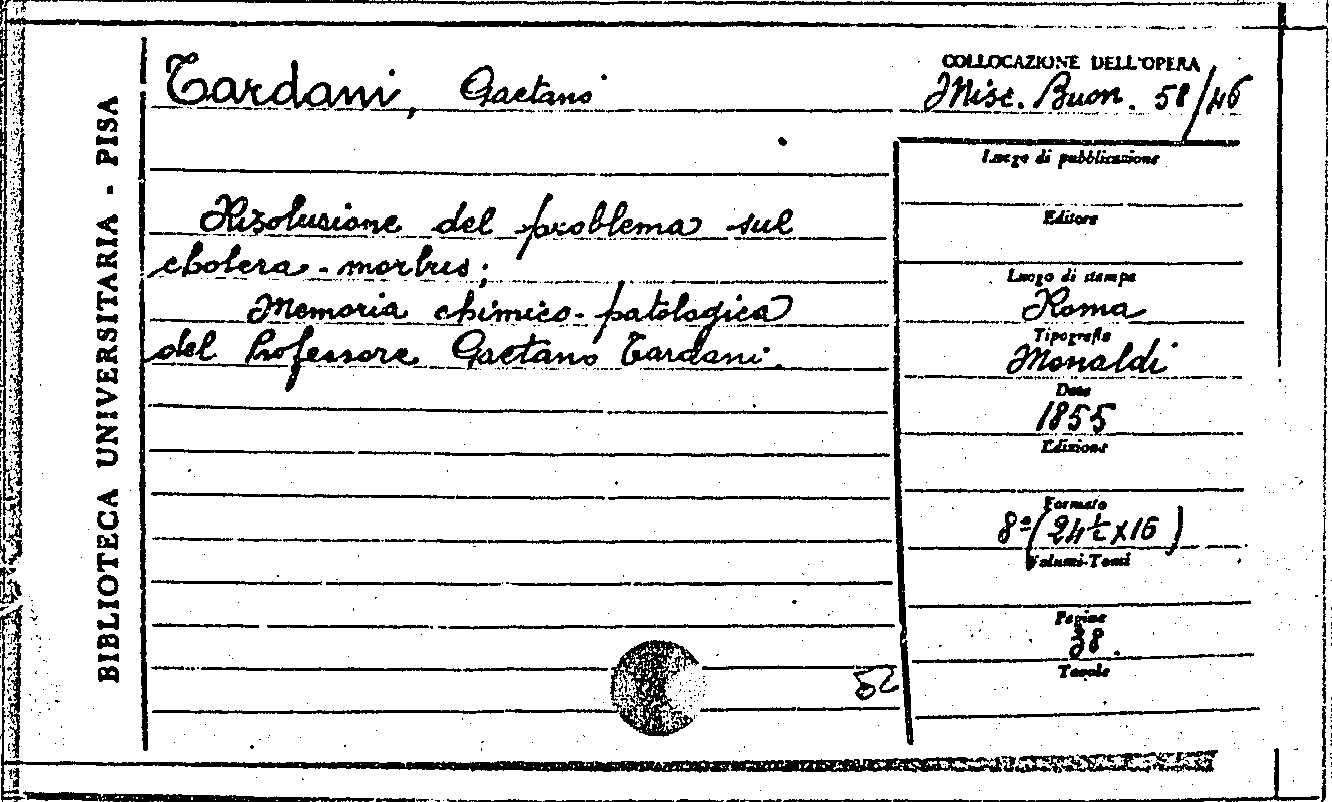 BIBLIOTECA UNIVERSITARIA - PISA
Tardani, Gaetano
COLLOCAZIONE DELL'OPERA
Misc. Buon. 58/46
Risoluzione del problema sul
cholera-morbus;
Memoria chimico-patologica
del Professore Gaetano Tardani.
Luogo di pubblicazione
Editore
Luogo di stampa
Roma
Tipografia
Monaldi
Data
1855
Edizione
Formato
8º (24½ x 16)
Volumi-Tomi
Pagine
38.
Tavole